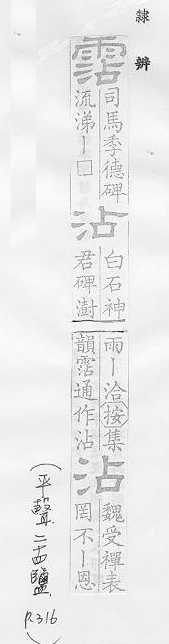 隸辨
霑
司馬季德碑
流涕丨□
沾
白石神
君碑澍
雨丨洽按集
韻霑通作沾
沾
魏受禪表
罔不丨恩
(平聲二十四鹽 P.316)